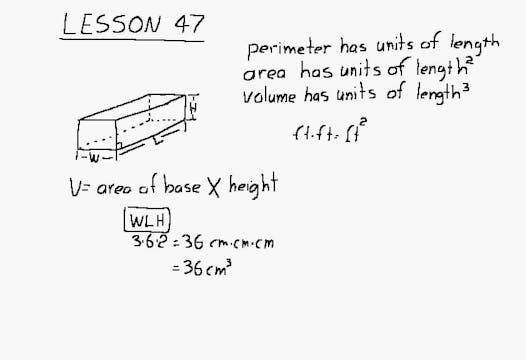 LESSON 47
perimeter has units of length
area has units of length²
volume has units of length³
ft·ft= ft²
H
W
L
V= area of base X height
WLH
3·6·2 = 36 cm·cm·cm
= 36 cm³